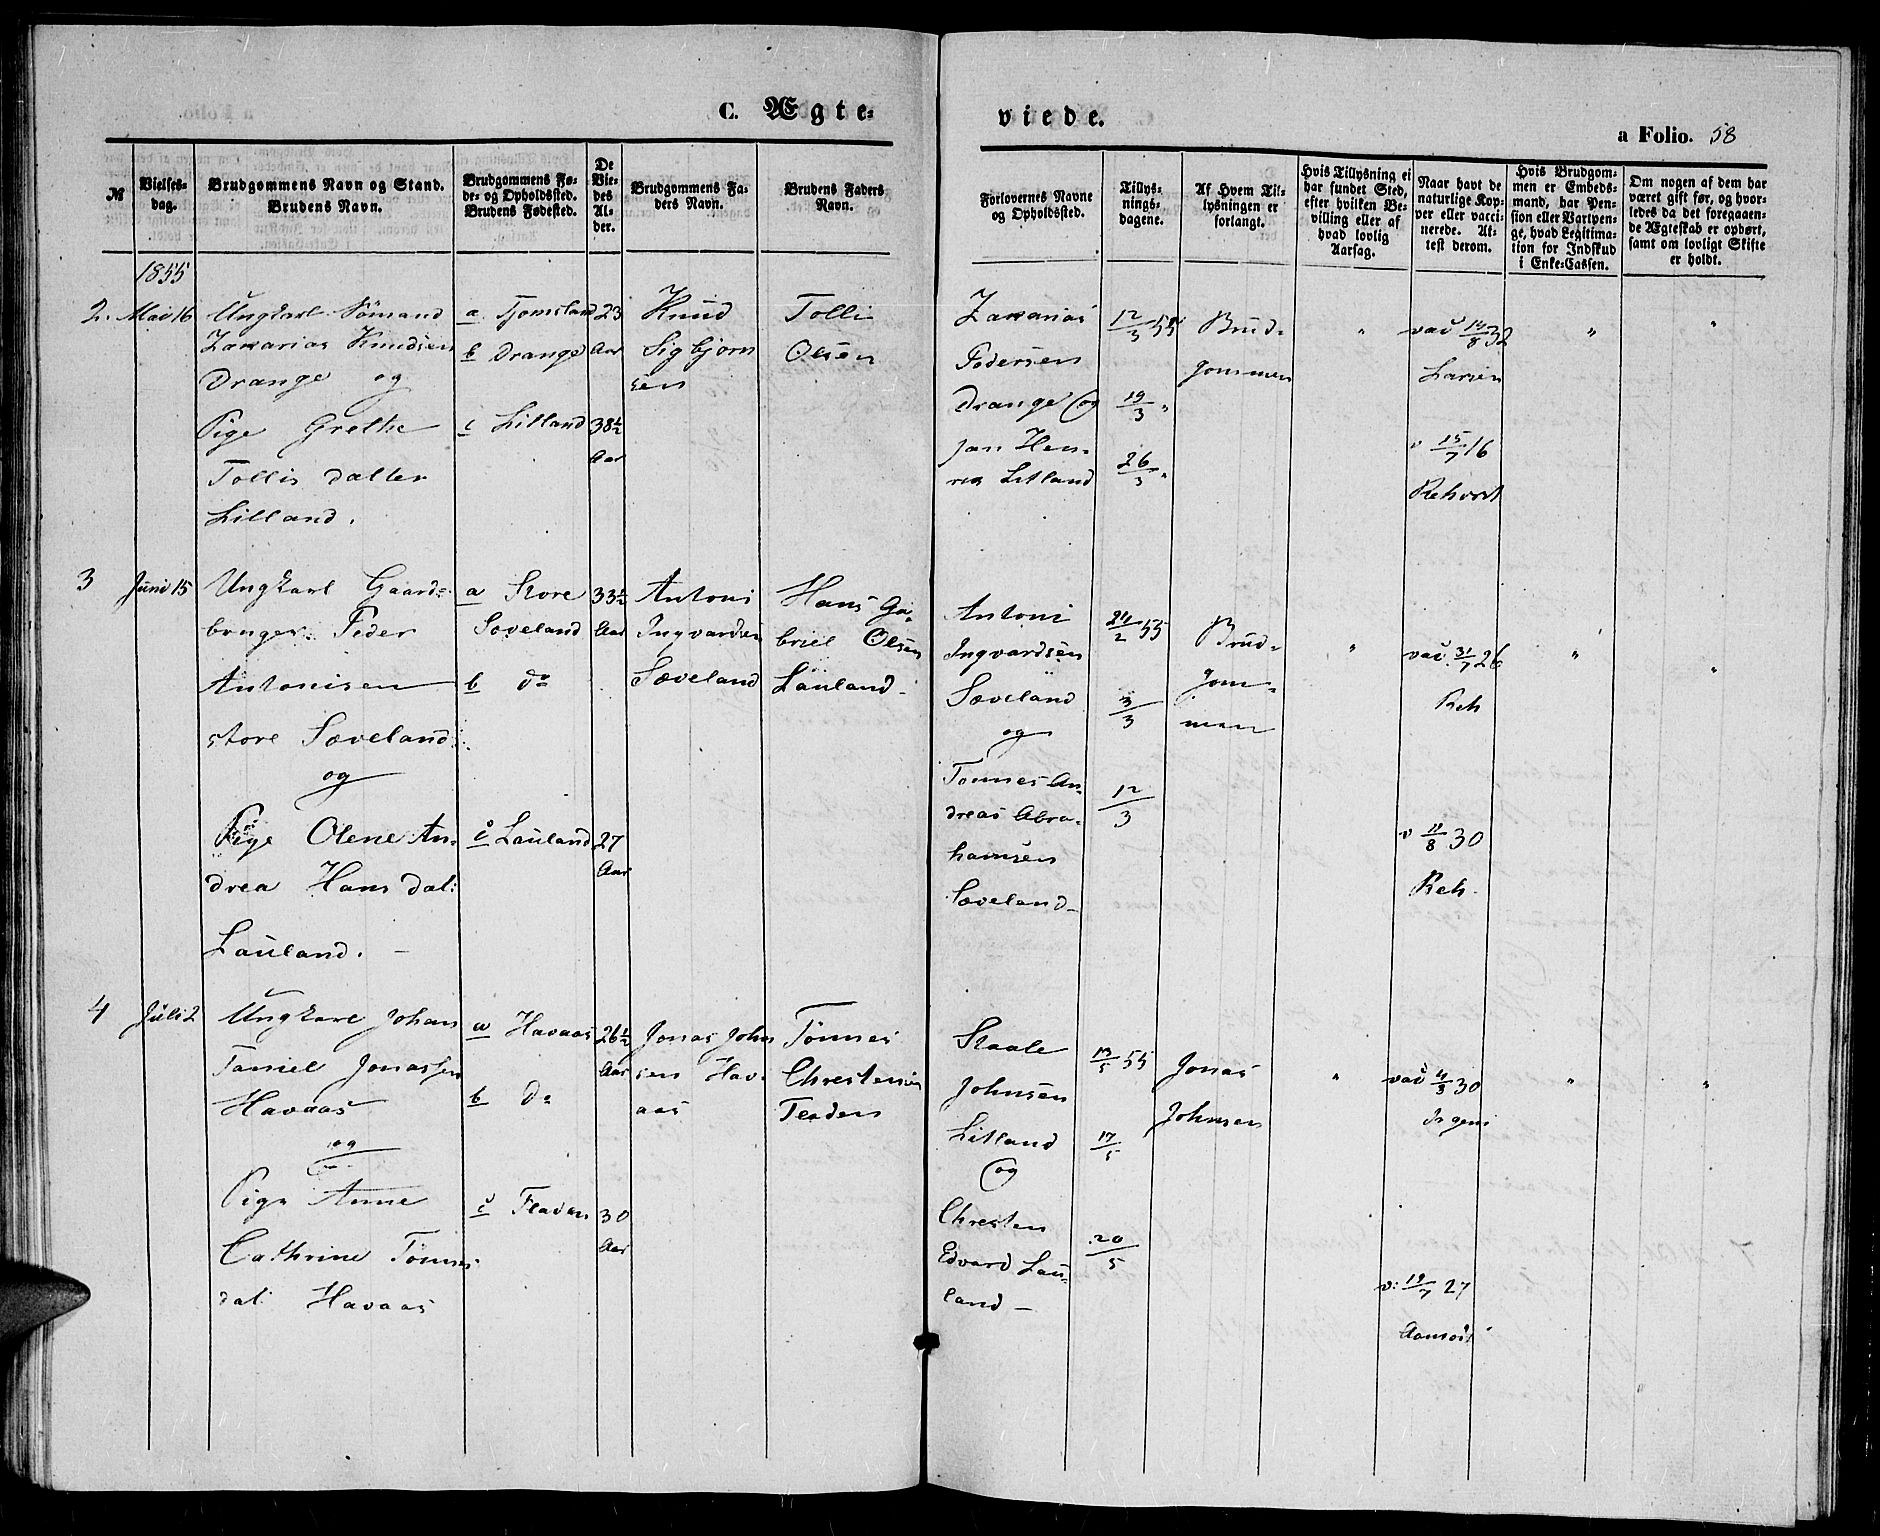 C. Ægte=
viede.
a Folio. 58
№
Vielses-
dag.
Brudgommens Navn og Stand.
Brudens Navn.
Brudgommens Fø-
de- og Opholdssted.
Brudens Fødested.
De
Vie-
des
Al-
der.
Brudgommens Fa-
ders Navn.
Brudens Faders
Navn.
Forlovernes Navne
og Opholdssted.
Tillys-
nings-
dagene.
Af Hvem Til-
lysningen er
forlangt.
Hvis Tillysning ei
har fundet Sted,
efter hvilken Be-
villing eller af
hvad lovlig
Aarsag.
Naar havt de
naturlige Kop-
per eller vacci-
nerede. At-
test derom.
Hvis Brudgom-
men er Embeds-
mand, har Pen-
sion eller Vartpen-
ge, hvad Legitima-
tion for Indskud
i Enke-Cassen.
Om nogen af dem har
været gift før, og hvor-
ledes da det foregaaen-
de Ægteskab er ophørt,
samt om lovligt Skifte
er holdt.
1855
2. Mai 16
Ungkarl Sömand
Zakarias Knudsen
Drange og
Pige Grethe
Tollis datter
Litland.
a Tjomsland
b Drange
c Litland
23
Aar
38½
Aar
Knud
Sigbjörn
sen
Tolli
Olsen
Zakarias
Pedersen
Drange og
Jan Hen-
rik Litland
12/3 55
19/3 "
26/3 "
Brud-
gommen
"
vac 14/8 32
Larsen
v 15/7 16
Rehvort
"
"
3 Juni 15
Ungkarl Gaard-
bruger Peder
Antonisen
store Sæveland
og
Pige Olene An-
drea Hans dat:
Lauland. —
a Store
Sæveland
b do
c Lauland
33½
Aar
27
Aar
Antoni
Ingvardsen
Sæveland
Hans Ga-
briel Olsen
Lauland -
Antoni
Ingvardsen
Sæveland
og
Tönnes An-
dreas Abra-
hamsen
Sæveland -
24/2 55
3/3
12/3
Brud-
gom-
men
"
vac. 31/7 26
Reh
v 11/8 30
Reh.
"
"
4 Juli 2
Ungkarl Johan
Taniel Jonassen
Havaas
og
Pige Anne
Cathrine Tönnes
dat: Havaas
a Havaas
b do
c Fladen
26½
Aar
30
Aar
Jonas John
sen Hav-
aas
Tönnes
Christensen
Fladen
Staale
Johnsen
Litland
og
Chresten
Edvard Lau-
land -
13/5 55
17/5
20/5
Jonas
Johnsen
"
vac 4/3 30
Irgens
v: 19/7 27
"
"